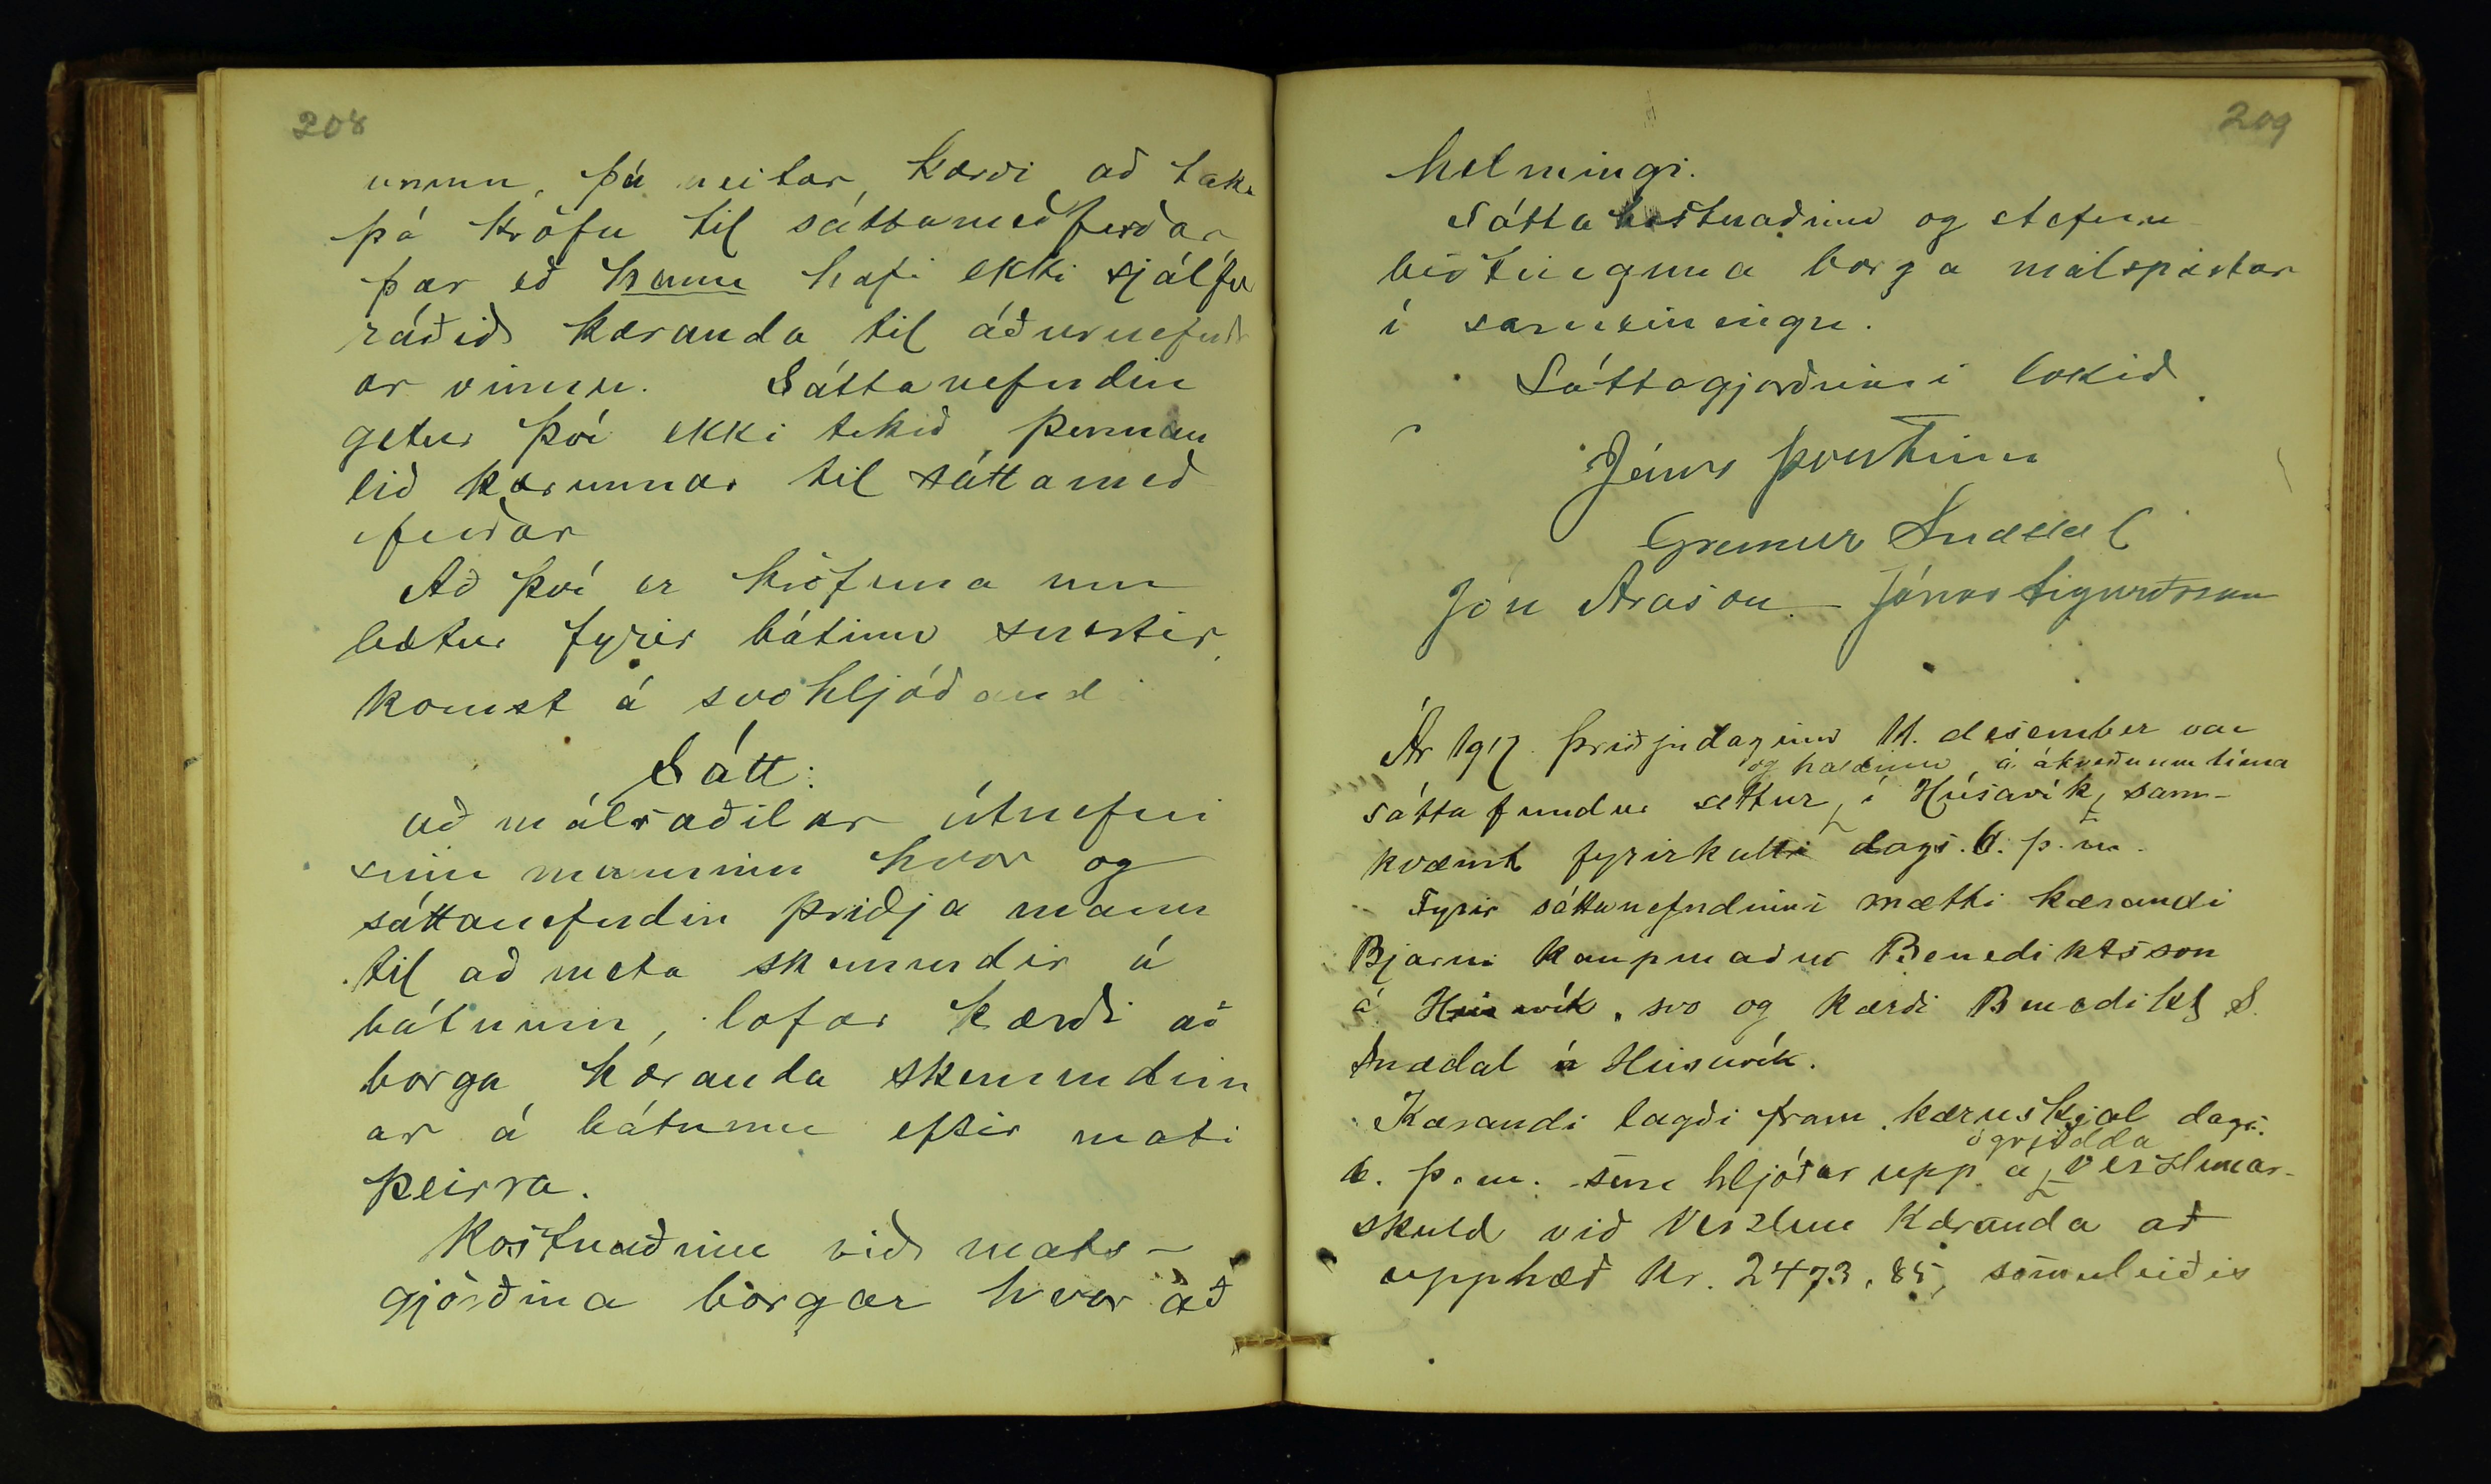 208
unnu, þá neitar, kærði að taka
þá kröfu til sáttameðferðar
þar eð hann hafi ekki sjálfur
ráðið kæranda til áðurnefndr
ar vinnu. Sáttanefndin
getur því ekki tekið þennan
lið kærunnar til sáttameð
ferðar
Að því er kröfuna um
bætur fyrir bátinn snertir,
komst á svohljóðand
Sátt:
að málsaðilar útnefni
sinn manninn hvor og
sáttanefndin þriðja mann
til að meta skemmdir á
bátnum, lofar kærði að
borga kæranda skemmdirn
ar á bátnum eftir mati
þeirra.
Kostnaðinn við mats-
gjörðina borgar hvor að
209
helmingi.
Sáttakostnaðinn og stefnu
birtinguna borga málspartar
í sameiningu.
Sáttagjörðinni lokið.
Jónas
Snædal
Jón Arason - Jónas Sigurðsson
Ár 1917 þriðjudaginn 11. desember var
og haldinn á ákveðnum tíma
sáttafundur settur í Húsavík, sam-
kvæmt fyrirkalli dags. 6. þ. m.
Fyrir sáttanefndinni mætti kærandi
Bjarni kaupmaður Benediktsson
á Húsavík, svo og kærði Benedikt S.
Snædal á Húsavík.
Kærandi lagði fram kæruskjal dags.
ógreidda
6. þ. m. sem hljóðar upp á verzlunar-
skuld við verzlun kæranda að
upphæð kr. 2473,85, sömuleiðis